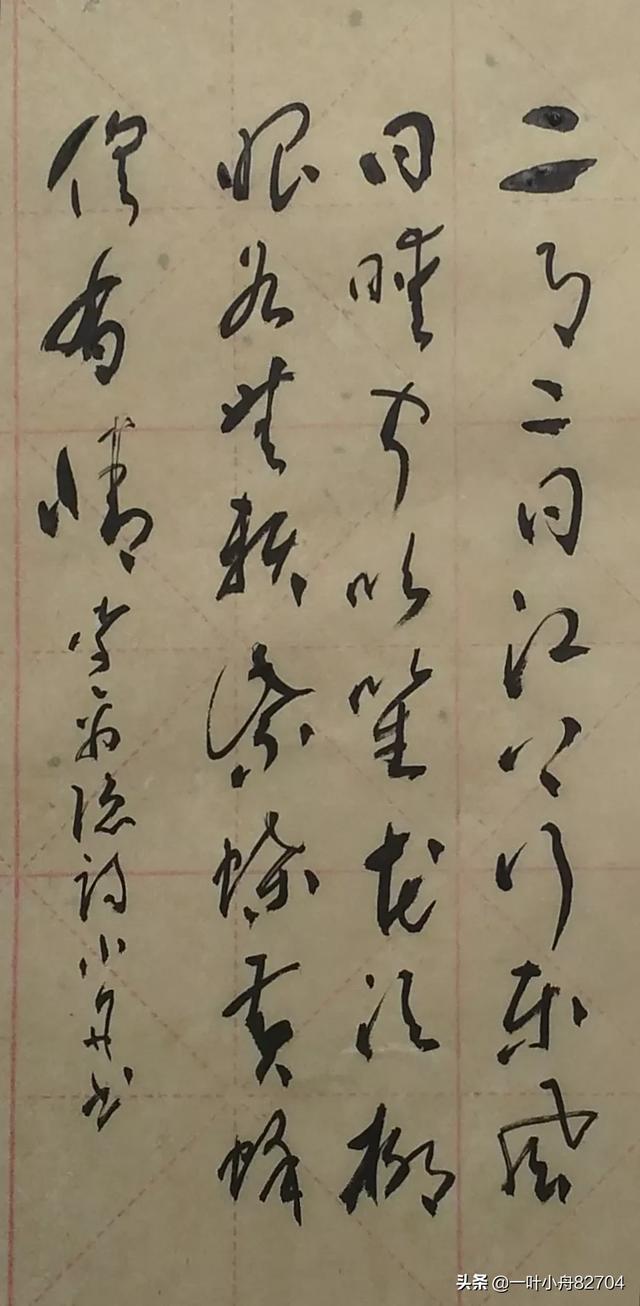 二月二日江上行东风
日暖闻吹笙花须柳
眼各无赖紫蝶黄蜂
俱有情 李商隐诗小舟书
头条 @一叶小舟82704